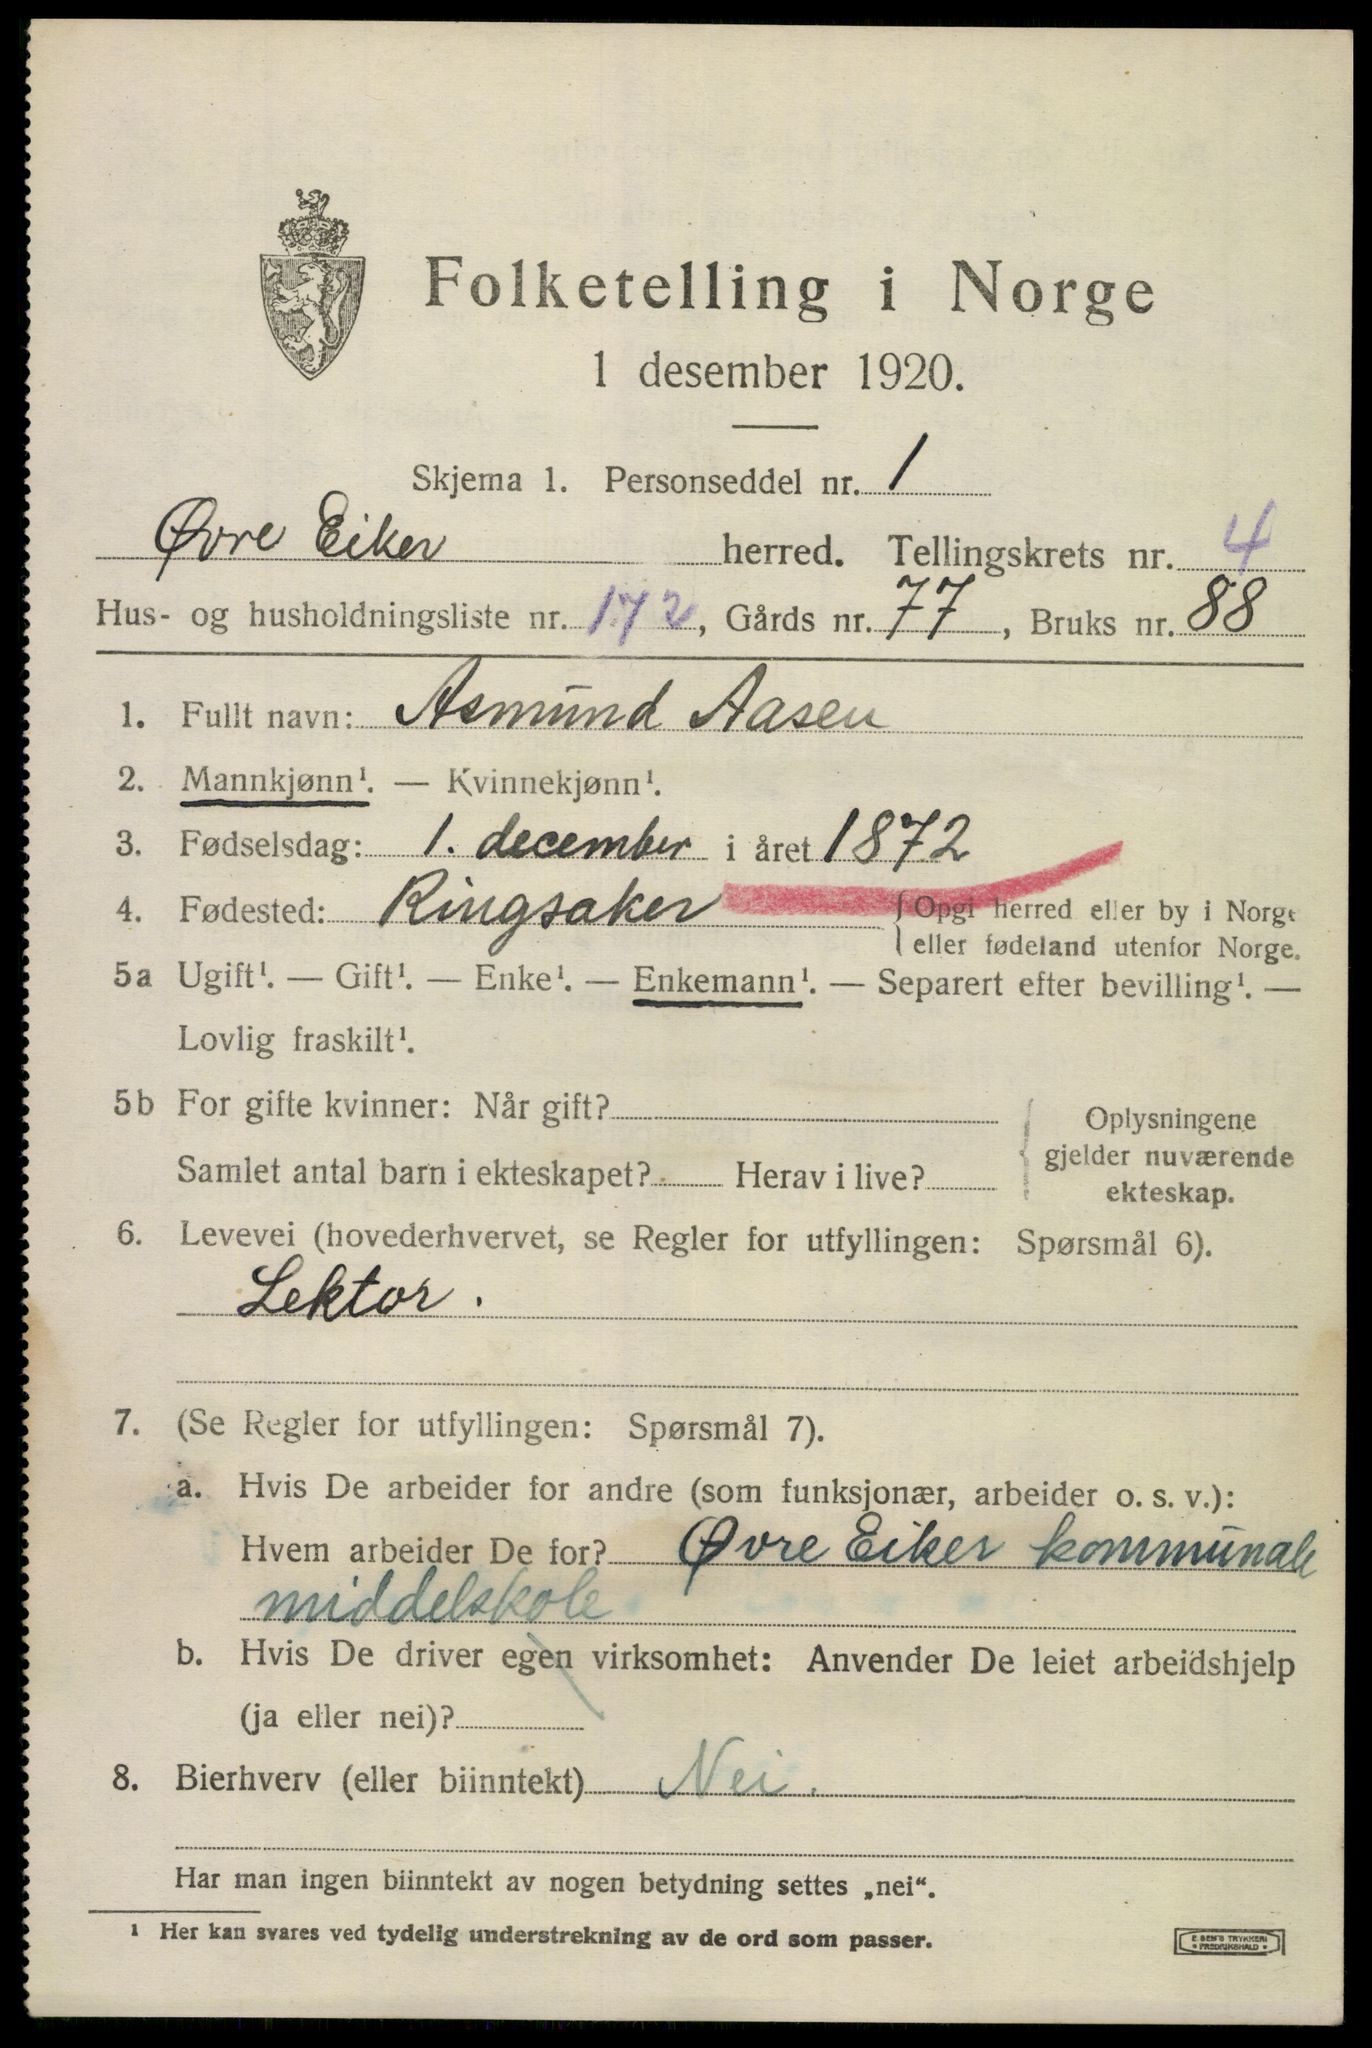 Folketelling i Norge
1 desember 1920.
Skjema 1. Personseddel nr. 1
Øvre Eiker herred. Tellingskrets nr. 4
Hus- og husholdningsliste nr. 172, Gårds nr. 77, Bruks nr. 88
1. Fullt navn: Asmund Aasen
2. Mannkjønn¹. — Kvinnekjønn¹.
3. Fødselsdag: 1. december i året 1872
4. Fødested: Ringsaker {Opgi herred eller by i Norge
eller fødeland utenfor Norge.
5a Ugift¹. — Gift¹. — Enke¹. — Enkemann¹. — Separert efter bevilling¹. —
Lovlig fraskilt¹.
5b For gifte kvinner: Når gift?
Samlet antal barn i ekteskapet? Herav i live?
{Oplysningene
gjelder nuværende
ekteskap.
6. Levevei (hovederhvervet, se Regler for utfyllingen: Spørsmål 6).
Lektor.
7. (Se Regler for utfyllingen: Spørsmål 7).
a. Hvis De arbeider for andre (som funksjonær, arbeider o. s. v.):
Hvem arbeider De for? Øvre Eiker kommunale
middelskole
b. Hvis De driver egen virksomhet: Anvender De leiet arbeidshjelp
(ja eller nei)?
8. Bierhverv (eller biinntekt) Nei.
Har man ingen biinntekt av nogen betydning settes „nei“.
¹ Her kan svares ved tydelig understrekning av de ord som passer.
TRYKKERI
FREDRIKSHALD